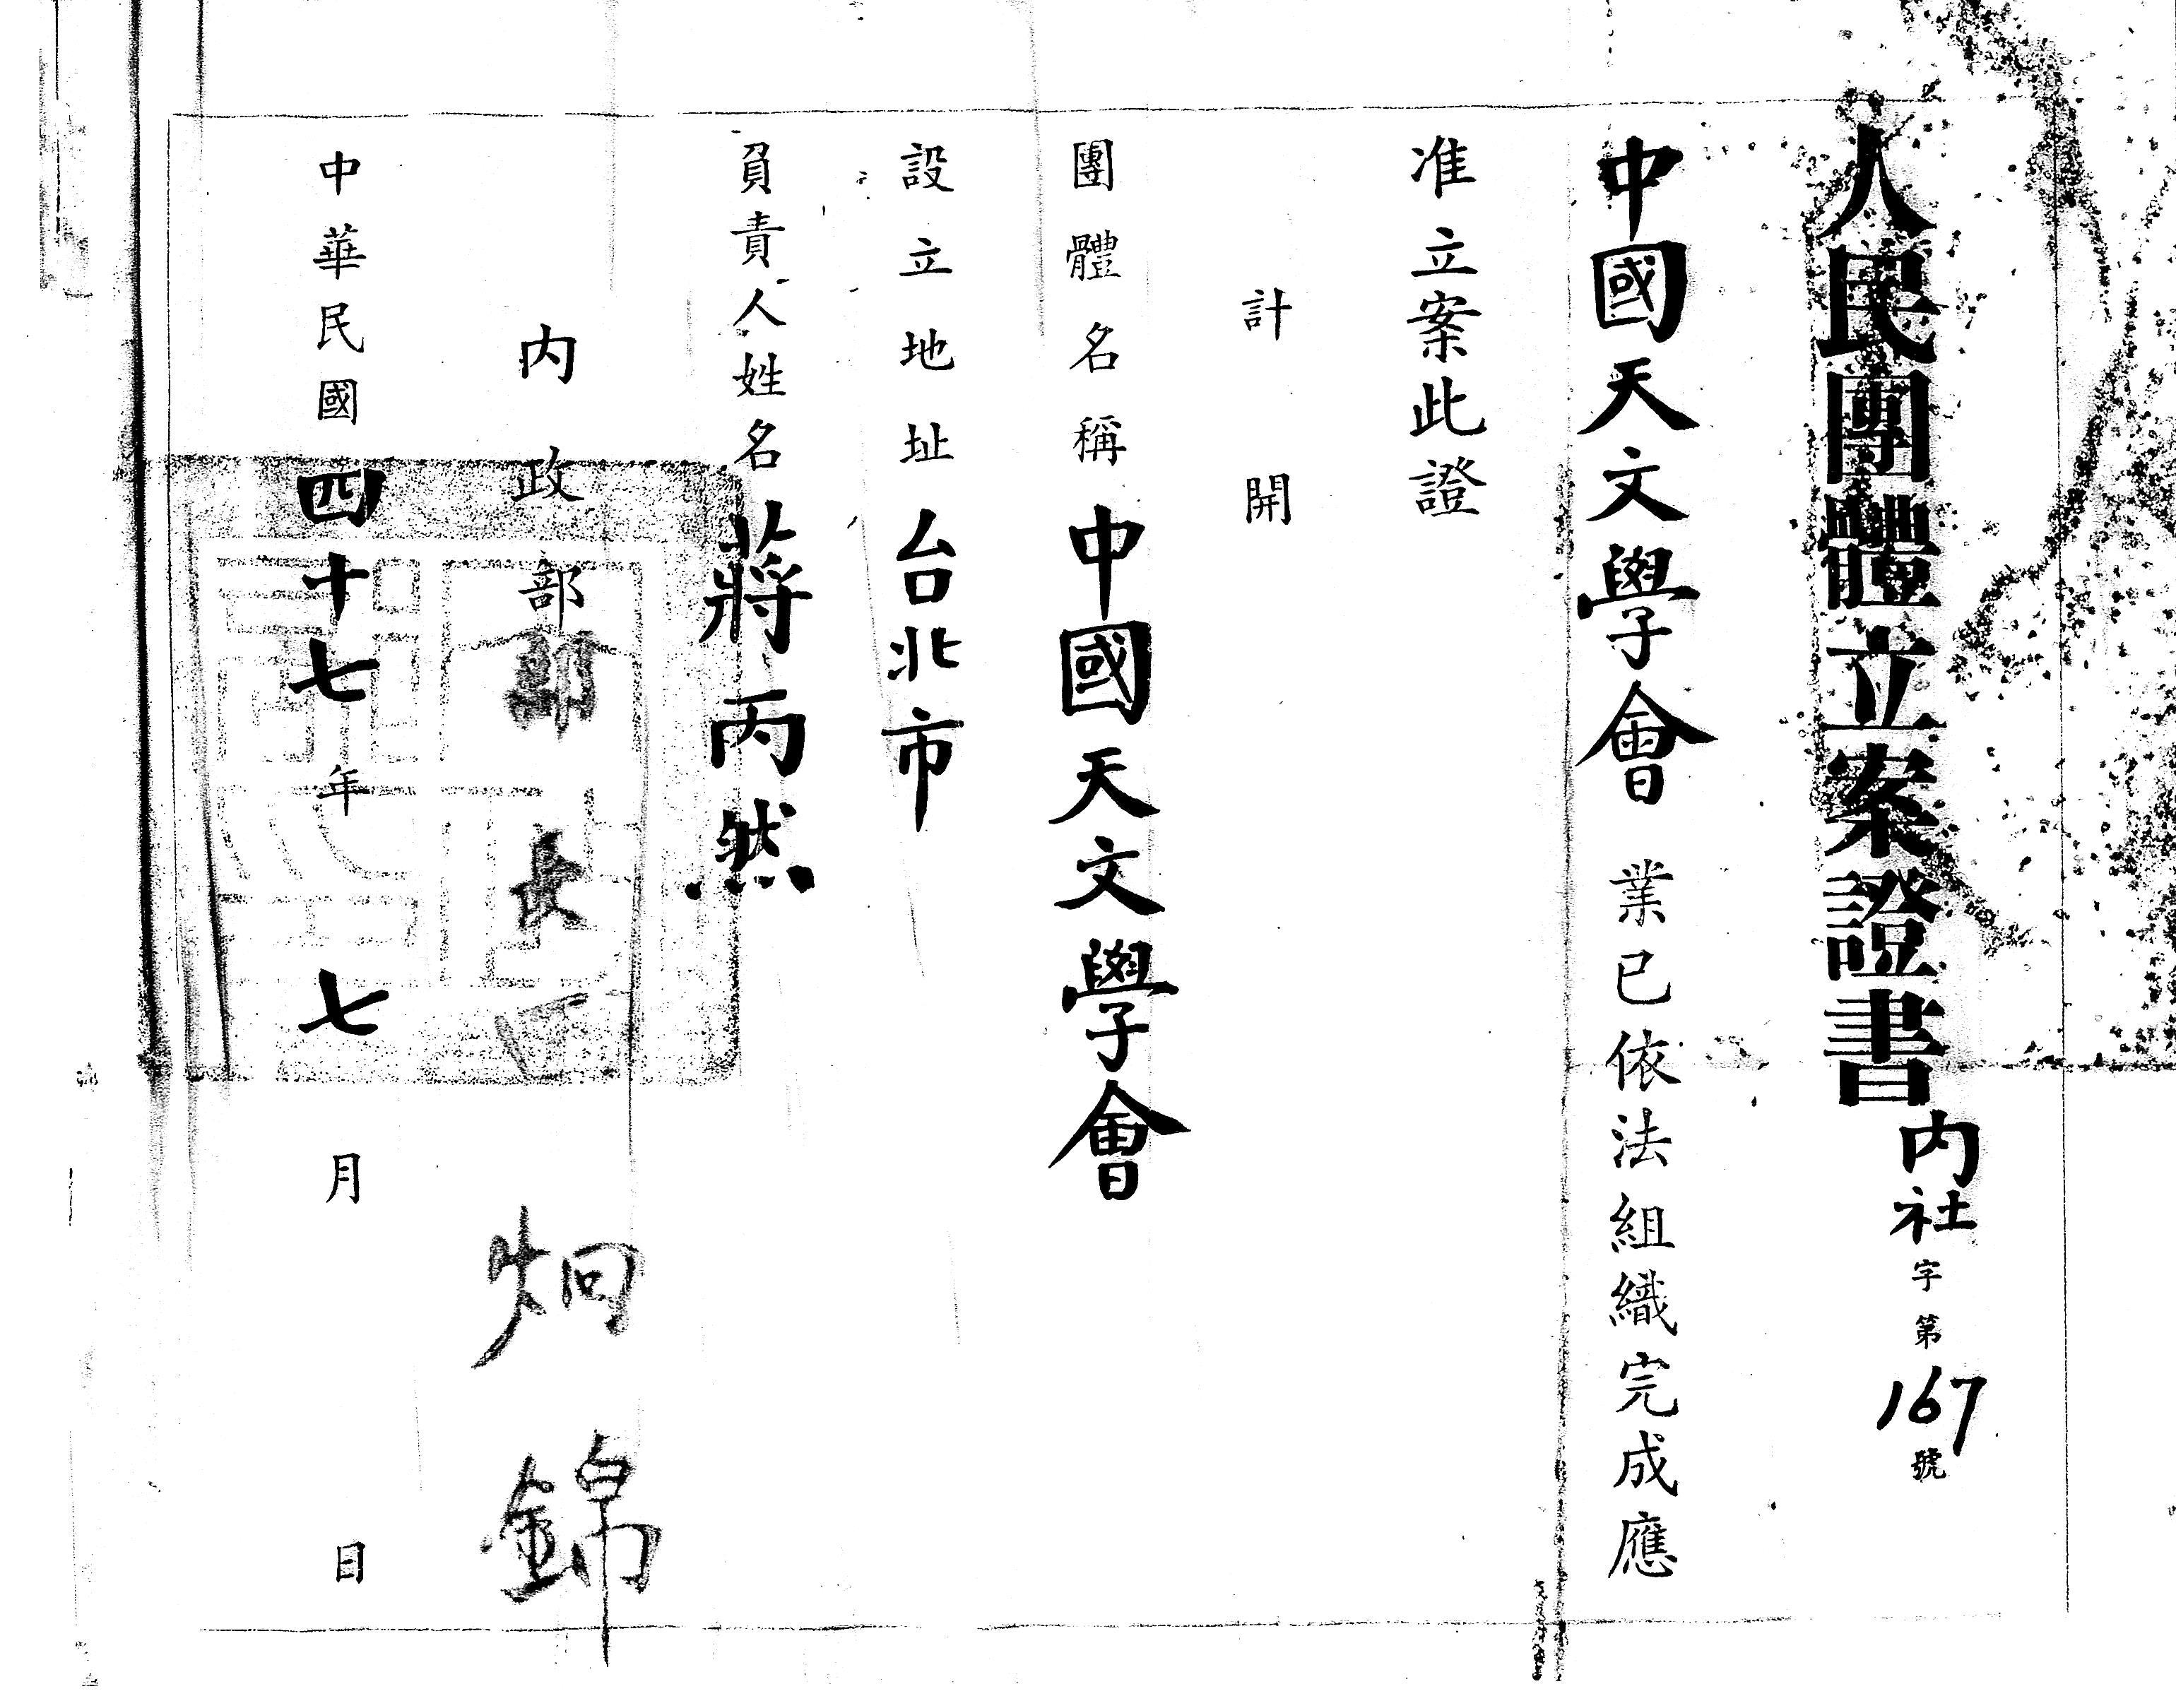 人民團體立案證書內社字第167號
中國天文學會業已依法組織完成應
准立案此證
計開
團體名稱中國天文學會
設立地址台北市
負責人姓名蔣丙然
內政部部長
炯錦
中華民國四十七年七月日